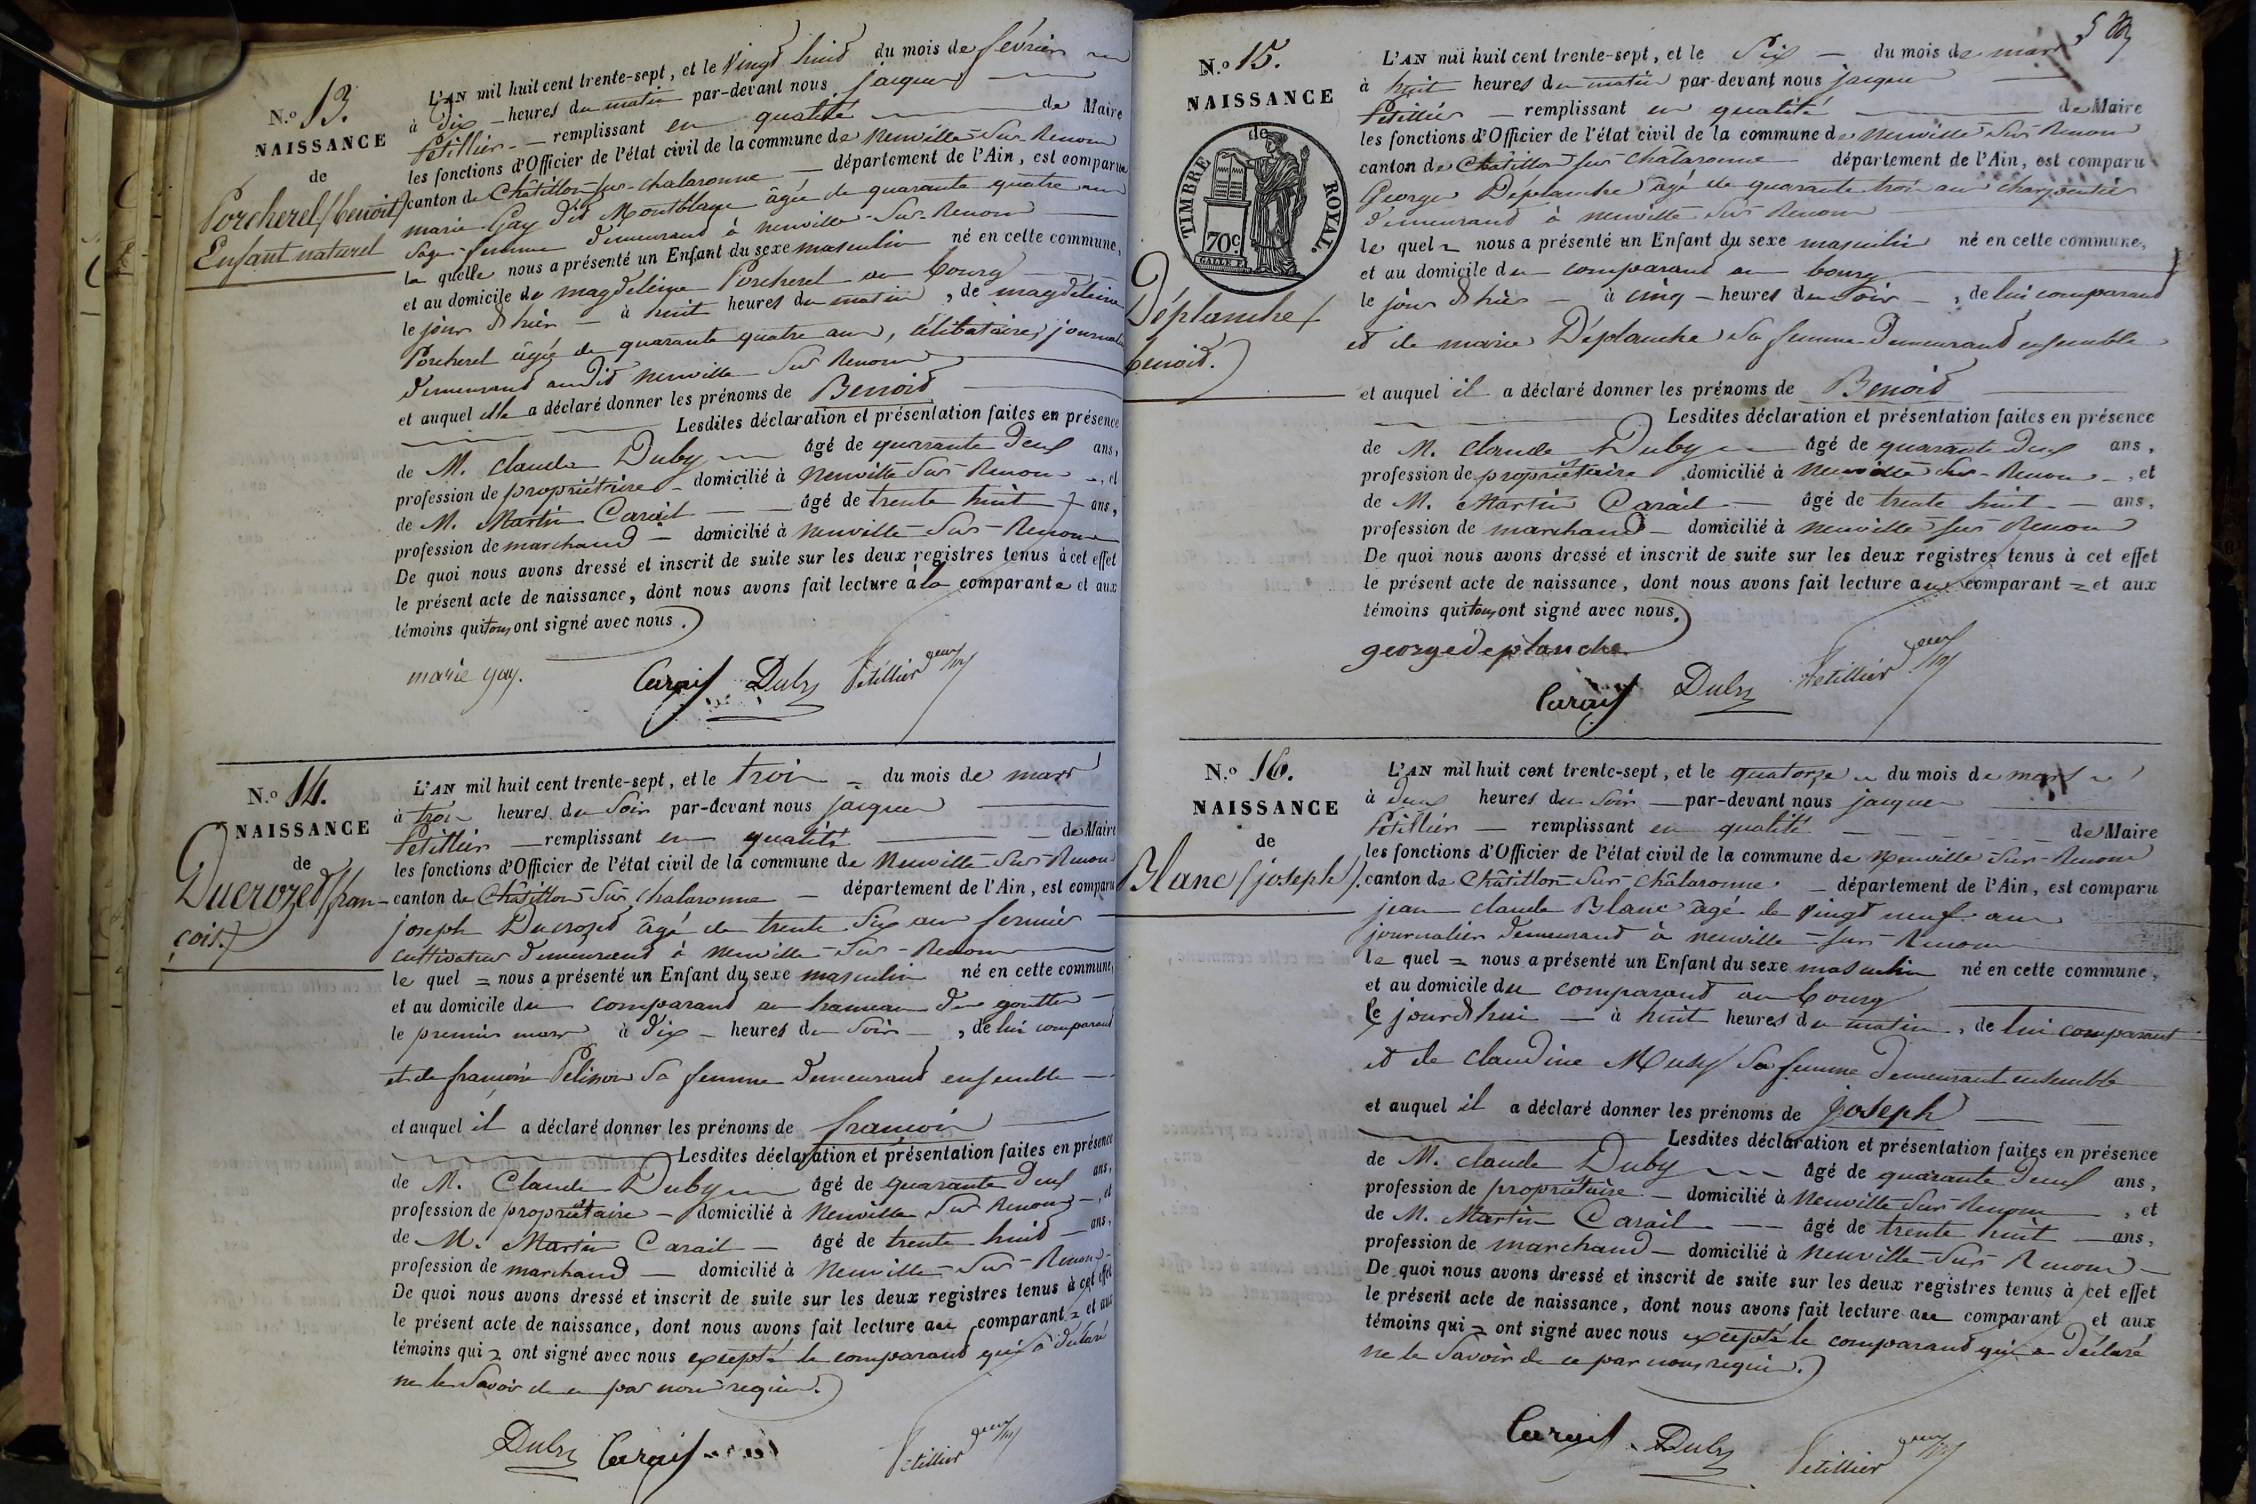 N.o 13.
NAISSANCE
de
Porcherel (benoit)
Enfant naturel
L'AN mil huit cent trente-sept, et le Vingt huit du mois de février
à dix heures du matin par-devant nous jacques
Petillier remplissant en qualité de Maire
les fonctions d'Officier de l'état civil de la commune de Neuville-Sur-Renom
canton de Châtillon-sur-chalaronne département de l'Ain, est comparue
marie Gay dit Montblanc âgée de quarante quatre ans
sage-femme demeurant à neuville-Sur-Renom
la quelle nous a présenté un Enfant du sexe masculin né en cette commune,
et au domicile de magdeleine Porcherel au bourg
le jour d'hier à huit heures du matin, de magdeleine
Porcherel âgée de quarante quatre ans, célibataire, journal
demeurant audit neuville-Sur Renom
et auquel elle a déclaré donner les prénoms de Benoit
Lesdites déclaration et présentation faites en présence
de M. claude Duby âgé de quarante deux ans,
profession de propriétaire domicilié à Neuville Sur-Renom, et
de M. Martin Carail âgé de trente huit ans,
profession de marchand domicilié à Neuville-Sur-Renom
De quoi nous avons dressé et inscrit de suite sur les deux registres tenus à cet effet
le présent acte de naissance, dont nous avons fait lecture à la comparante et aux
témoins qui tous ont signé avec nous.
marie gay. Carail Duby Petillier
N.o 14.
NAISSANCE
de
Ducrozed (fran-
çois.)
L'AN mil huit cent trente-sept, et le trois du mois de mars
à trois heures du Soir par-devant nous jacques
Petillier remplissant en qualité de Maire
les fonctions d'Officier de l'état civil de la commune de Neuville-Sur-Renom
canton de Châtillon-Sur-chalaronne département de l'Ain, est comparu
joseph Ducrozed âgé de trente Six ans fermier
cultivateur demeurant à Neuville-Sur-Renom
le quel = nous a présenté un Enfant du sexe masculin né en cette commune,
et au domicile du comparant au hameau de goutter
le premier mars à dix heures du Soir, de lui comparant
et de françoise Pelisson Sa femme demeurant ensemble
et auquel il a déclaré donner les prénoms de françois
Lesdites déclaration et présentation faites en présence
de M. Claude Duby âgé de quarante deux ans,
profession de propriétaire domicilié à Neuville Sur Renom, et
de M. Martin Carail âgé de trente huit ans,
profession de marchand domicilié à Neuville-Sur-Renom
De quoi nous avons dressé et inscrit de suite sur les deux registres tenus à cet effet
le présent acte de naissance, dont nous avons fait lecture au comparant = et aux
témoins qui = ont signé avec nous excepté le comparant qui a déclaré
ne le Savoir de ce par nous requis.
Duby Carail Petillier
N.o 15.
NAISSANCE
de
TIMBRE ROYAL.
70c.
Déplanche (
benoit.)
5
L'AN mil huit cent trente-sept, et le Six du mois de mars
à huit heures du matin par-devant nous jacques
Petillier remplissant en qualité de Maire
les fonctions d'Officier de l'état civil de la commune de Neuville-Sur-Renom
canton de Châtillon-sur-châlaronne département de l'Ain, est comparu
George Déplanche âgé de quarante trois ans charpentier
demeurant à neuville-Sur Renom
le quel = nous a présenté un Enfant du sexe masculin né en cette commune,
et au domicile du comparant au bourg
le jour d'hier à cinq heures du Soir, de lui comparant
et de marie Déplanche Sa femme demeurant ensemble
et auquel il a déclaré donner les prénoms de Benoit
Lesdites déclaration et présentation faites en présence
de M. claude Duby âgé de quarante deux ans,
profession de propriétaire domicilié à Neuville Sur-Renom, et
de M. Martin Carail âgé de trente huit ans,
profession de marchand domicilié à Neuville sur Renom
De quoi nous avons dressé et inscrit de suite sur les deux registres tenus à cet effet
le présent acte de naissance, dont nous avons fait lecture au comparant = et aux
témoins qui tous ont signé avec nous.
george déplanche
Carail Duby Petillier
N.o 16.
NAISSANCE
de
Blanc (joseph).
L'AN mil huit cent trente-sept, et le quatorze du mois de mars
à deux heures du Soir par-devant nous jacques
Petillier remplissant en qualité de Maire
les fonctions d'Officier de l'état civil de la commune de Neuville-Sur-Renom
canton de Châtillon-Sur-Châlaronne département de l'Ain, est comparu
jean claude Blanc âgé de Vingt neuf ans
journalier demeurant à neuville-sur-Renom
le quel = nous a présenté un Enfant du sexe masculin né en cette commune,
et au domicile du comparant au bourg
Le jourd'hui à huit heures du matin, de lui comparant
et de claudine Musy Sa femme demeurant ensemble
et auquel il a déclaré donner les prénoms de Joseph
Lesdites déclaration et présentation faites en présence
de M. claude Duby âgé de quarante deux ans,
profession de propriétaire domicilié à Neuville-Sur Renom, et
de M. Martin Carail âgé de trente huit ans,
profession de marchand domicilié à Neuville-Sur-Renom
De quoi nous avons dressé et inscrit de suite sur les deux registres tenus à cet effet
le présent acte de naissance, dont nous avons fait lecture au comparant et aux
témoins qui = ont signé avec nous excepté le comparant qui a déclaré
ne le Savoir de ce par nous requis.
Carail Duby Petillier